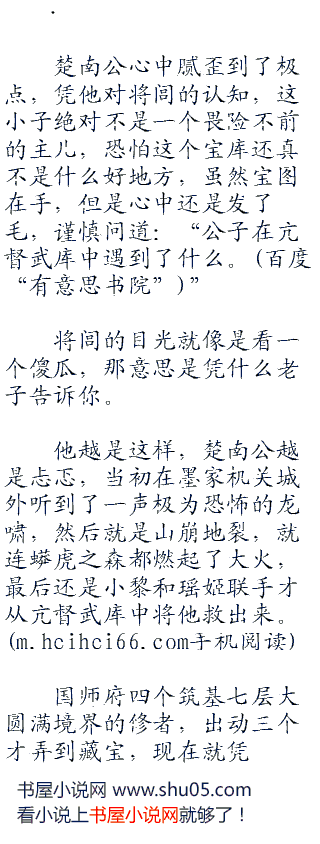 楚南公心中腻歪到了极
点，凭他对将闾的认知，这
小子绝对不是一个畏险不前
的主儿，恐怕这个宝库还真
不是什么好地方，虽然宝图
在手，但是心中还是发了
毛，谨慎问道：“公子在亢
督武库中遇到了什么。(百度
“有意思书院”)”
将闾的目光就像是看一
个傻瓜，那意思是凭什么老
子告诉你。
他越是这样，楚南公越
是忐忑，当初在墨家机关城
外听到了一声极为恐怖的龙
啸，然后就是山崩地裂，就
连蟒虎之森都燃起了大火，
最后还是小黎和瑶姬联手才
从亢督武库中将他救出来。
(m.hcihci66.com手机阅读)
国师府四个筑基七层大
圆满境界的修者，出动三个
才弄到藏宝，现在就凭
书屋小说网 www.shu05.com
看小说上书屋小说网就够了！